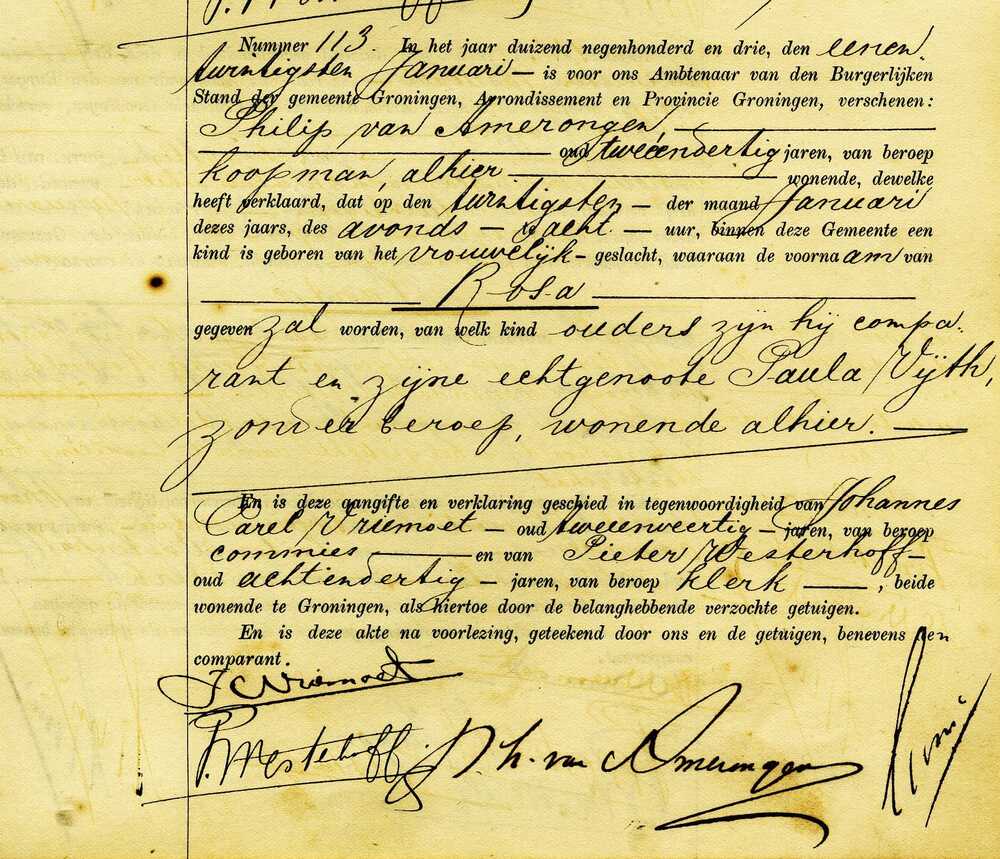 Nummer 113. In het jaar duizend negenhonderd en drie, den eenen
twintigsten Januari — is voor ons Ambtenaar van den Burgerlijken
Stand der gemeente Groningen, Arrondissement en Provincie Groningen, verschenen:
Philip van Amerongen, —
— oud tweeendertig jaren, van beroep
koopman, alhier — wonende, dewelke
heeft verklaard, dat op den twintigsten — der maand Januari
dezes jaars, des avonds — acht — uur, binnen deze Gemeente een
kind is geboren van het vrouwelijk — geslacht, waaraan de voornaam van
— Rosa —
gegeven zal worden, van welk kind ouders zijn hij compa-
rant en zijne echtgenoote Paula Vijth,
zonder beroep, wonende alhier. —
En is deze aangifte en verklaring geschied in tegenwoordigheid van Johannes
Carel Vriemoet — oud tweeenveertig — jaren, van beroep
commies — en van Pieter Westerhoff —
oud achtendertig — jaren, van beroep klerk —, beide
wonende te Groningen, als hiertoe door de belanghebbende verzochte getuigen.
En is deze akte na voorlezing, geteekend door ons en de getuigen, benevens den
comparant.
JCVriemoet
P. Westerhoff Ph. van Amerongen